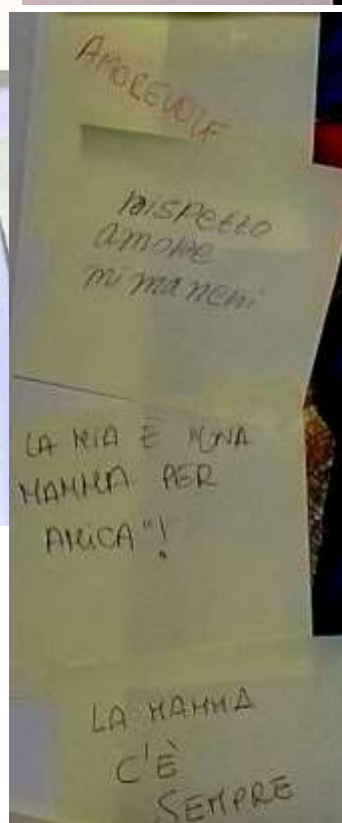 AMOREVOLE
RISPETTO
amore
mi manchi
LA MIA È "UNA
MAMMA PER
AMICA"!
LA MAMMA
C'È
SEMPRE